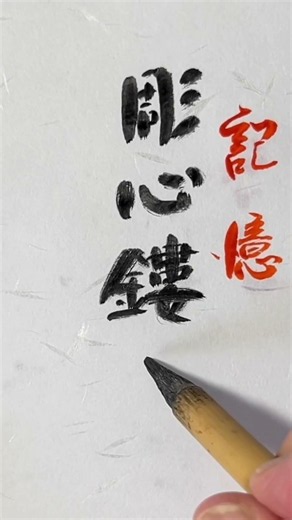 記憶
彫心鏤